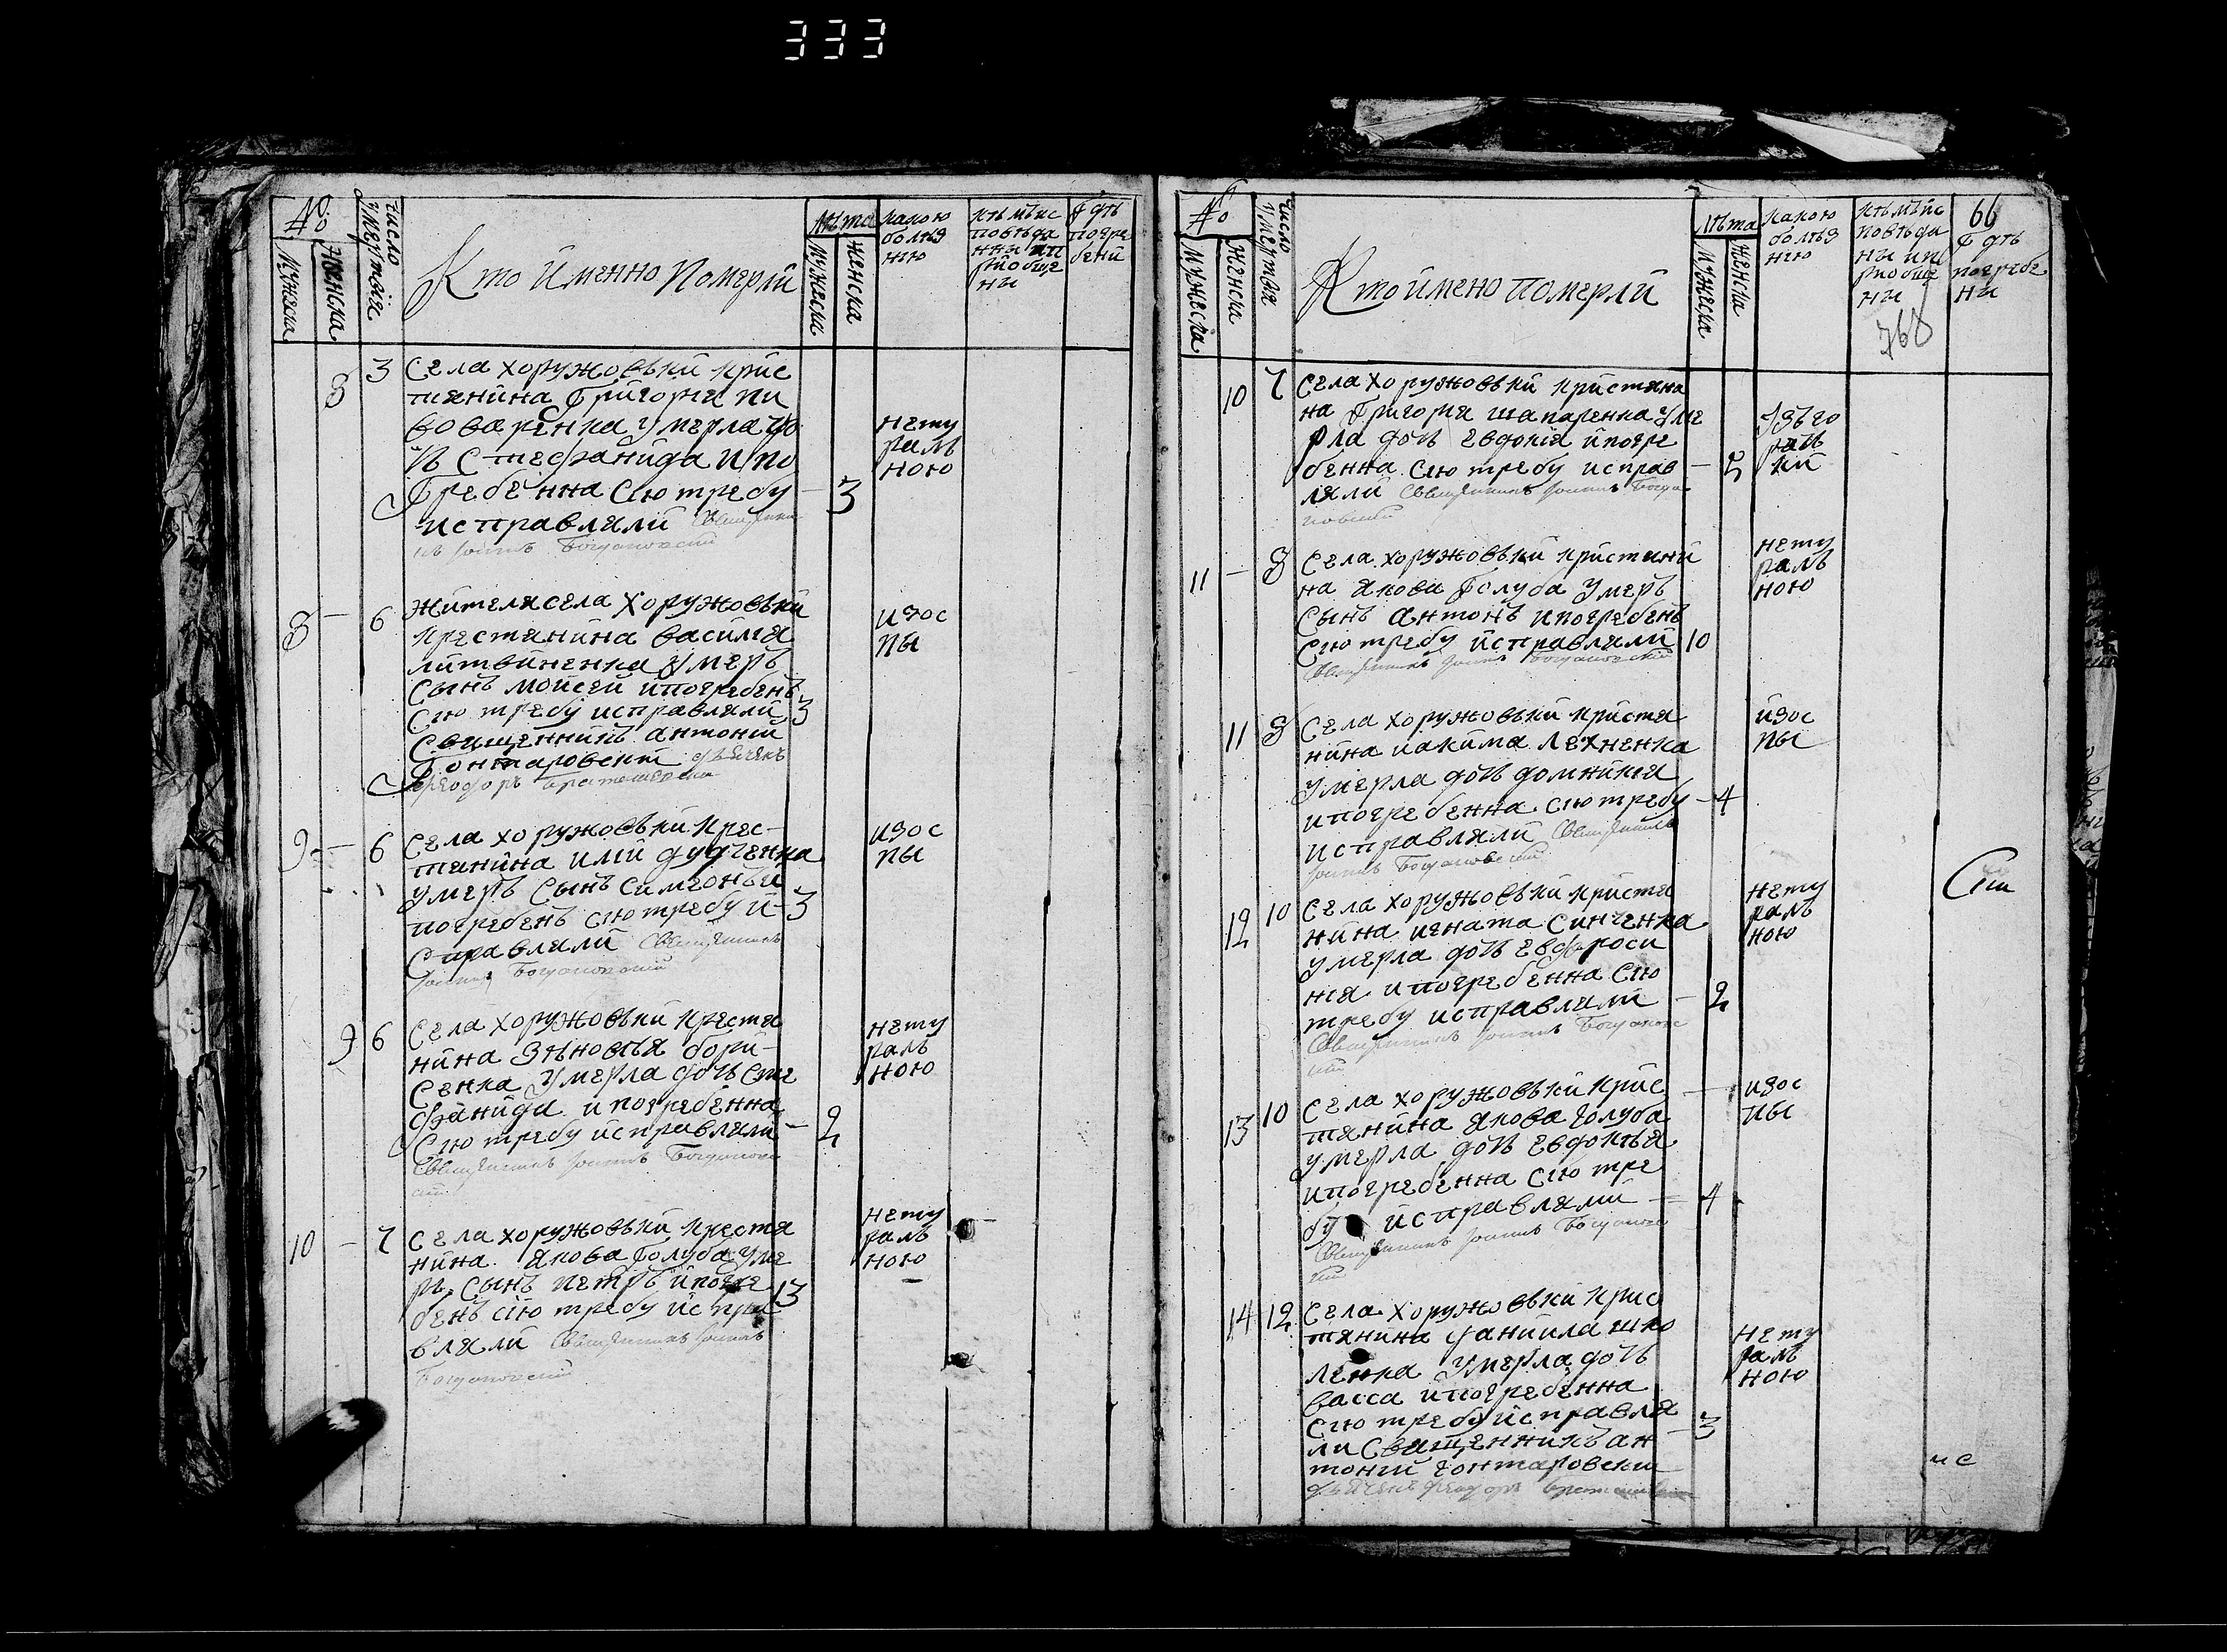 333
№
мужеска
женска
число умертвіе
Кто именно померли
лѣта
мужеска
женска
какою
болѣз
нею
кѣмъ ис
повѣда
нны ип
риобще
ны
Гдѣ
погре
бени
8 3 Села хоружовъки крис
тянина Григория пи
воваренка умерла до
чь Стефанида и по
гребенна сию требу 3
исправляли Священни
къ Иоаннъ
нету
ралъ
ною
8 — 6 жителя села Хоружовъки
крестянина василия
литвиненка умеръ
сынъ моисей и погребенъ
сию требу исправляли 3
Священникъ антоний
Гонтаровский
изос
пы
9 — 6 Села хоружовъки крес
тянина илии дудченка
умеръ сынъ симеонъ и
погребенъ сию требу и 3
справляли Священникъ
Иоаннъ
изос
пы
9 6 Села хоружовъки крестя
нина Зѣновья бори
сенка умерла дочь сте
фанида и погребенна
сию требу исправляли 2
Священникъ Иоаннъ
нету
ралъ
ною
10 — 7 Села хоружовъки крестя
нина Якова Голуба уме
ръ сынъ петръ и погре 13
бенъ сию требу испра
вляли Священникъ Иоаннъ
нету
ралъ
ною
№
мужеска
женска
число умертвія
Кто имено померли
лѣта
мужеска
женска
какою
болѣз
нею
кѣмъ ис
повѣда
ны ипи
риобще
ны
768
66
Гдѣ
погребе
ны
10 7 Села хоружовъки кристяни
на Григория шапаренка уме
рла дочь евдокия и погре
бенна сию требу исправ
ляли Священникъ Иоаннъ
11 — 8 Села хоружовъки кристяни
на Якова Голуба умеръ
сынъ антонъ и погребенъ
сию требу исправляли 10
Священникъ Иоаннъ
нету
ралъ
ною
11 8 Села хоружовъки кристя
нина иакима лехненка
умерла дочь домникия
и погребенна сию требу 4
исправляли Священникъ
Иоаннъ
изос
пы
12 10 Села хоружовъки кристя
нина игната синченка
умерла дочь евфроси
ния и погребенна сию
требу исправляли 2
Священникъ Иоаннъ
нету
ралъ
ною
13 10 Села хоружовъки крис
тянина Якова голуба
умерла дочь евдокья
и погребенна сию тре
бу исправляли 4
Священникъ Иоаннъ
изос
пы
14 12 Села хоружовъки крис
тянина даниила шко
ленка умерла дочь
васса и погребенна
сию требу исправля 3
ли Священникъ ан
тоний гонтаровский
нету
ралъ
ною